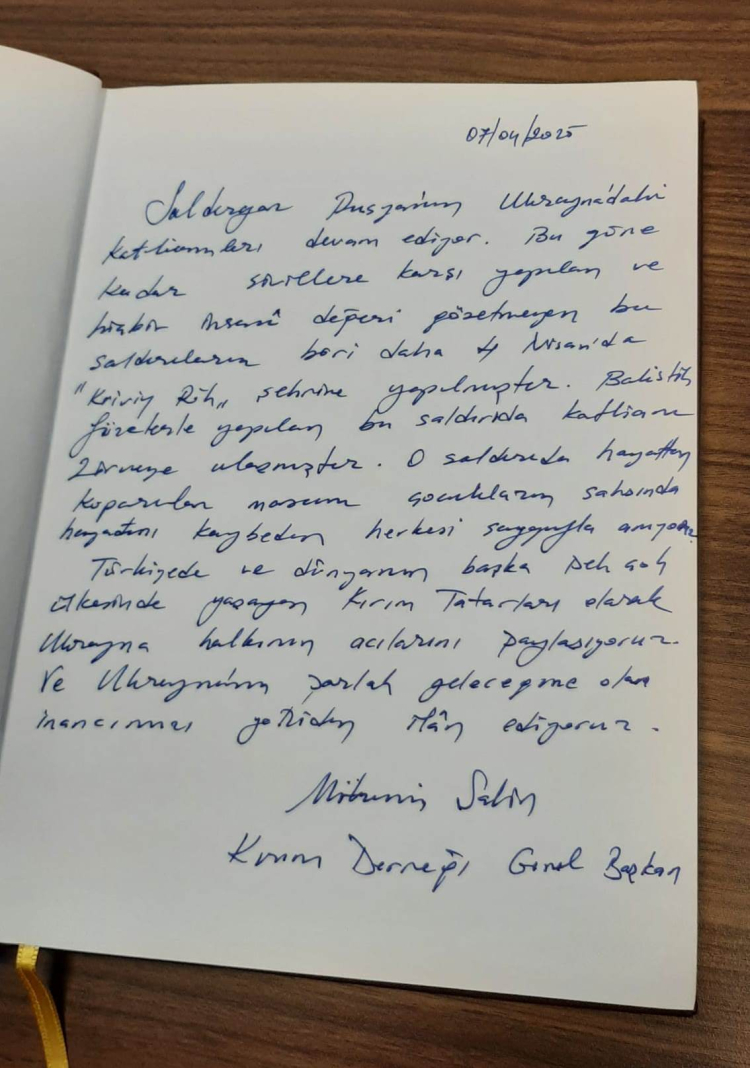 07/04/2025
Saldırgan Rusyanın Ukrayna'daki
katliamları devam ediyor. Bu güne
kadar sivillere karşı yapılan ve
hiçbir insanî değeri gözetmeyen bu
saldırıların biri daha 4 Nisan'da
"Kriviy Rih" şehrine yapılmıştır. Balistik
füzelerle yapılan bu saldırıda katliam
zirveye ulaşmıştır. O saldırıda hayattan
koparılan masum çocukların şahsında
hayatını kaybeden herkesi saygıyla anıyoruz
Türkiyede ve dünyanın başka pek çok
ülkesinde yaşayan Kırım Tatarları olarak
Ukrayna halkının acılarını paylaşıyoruz.
Ve Ukrayna'nın parlak geleceğine olan
inancımızı yeniden ilân ediyoruz.
Şahin
Kırım Derneği Genel Başkan